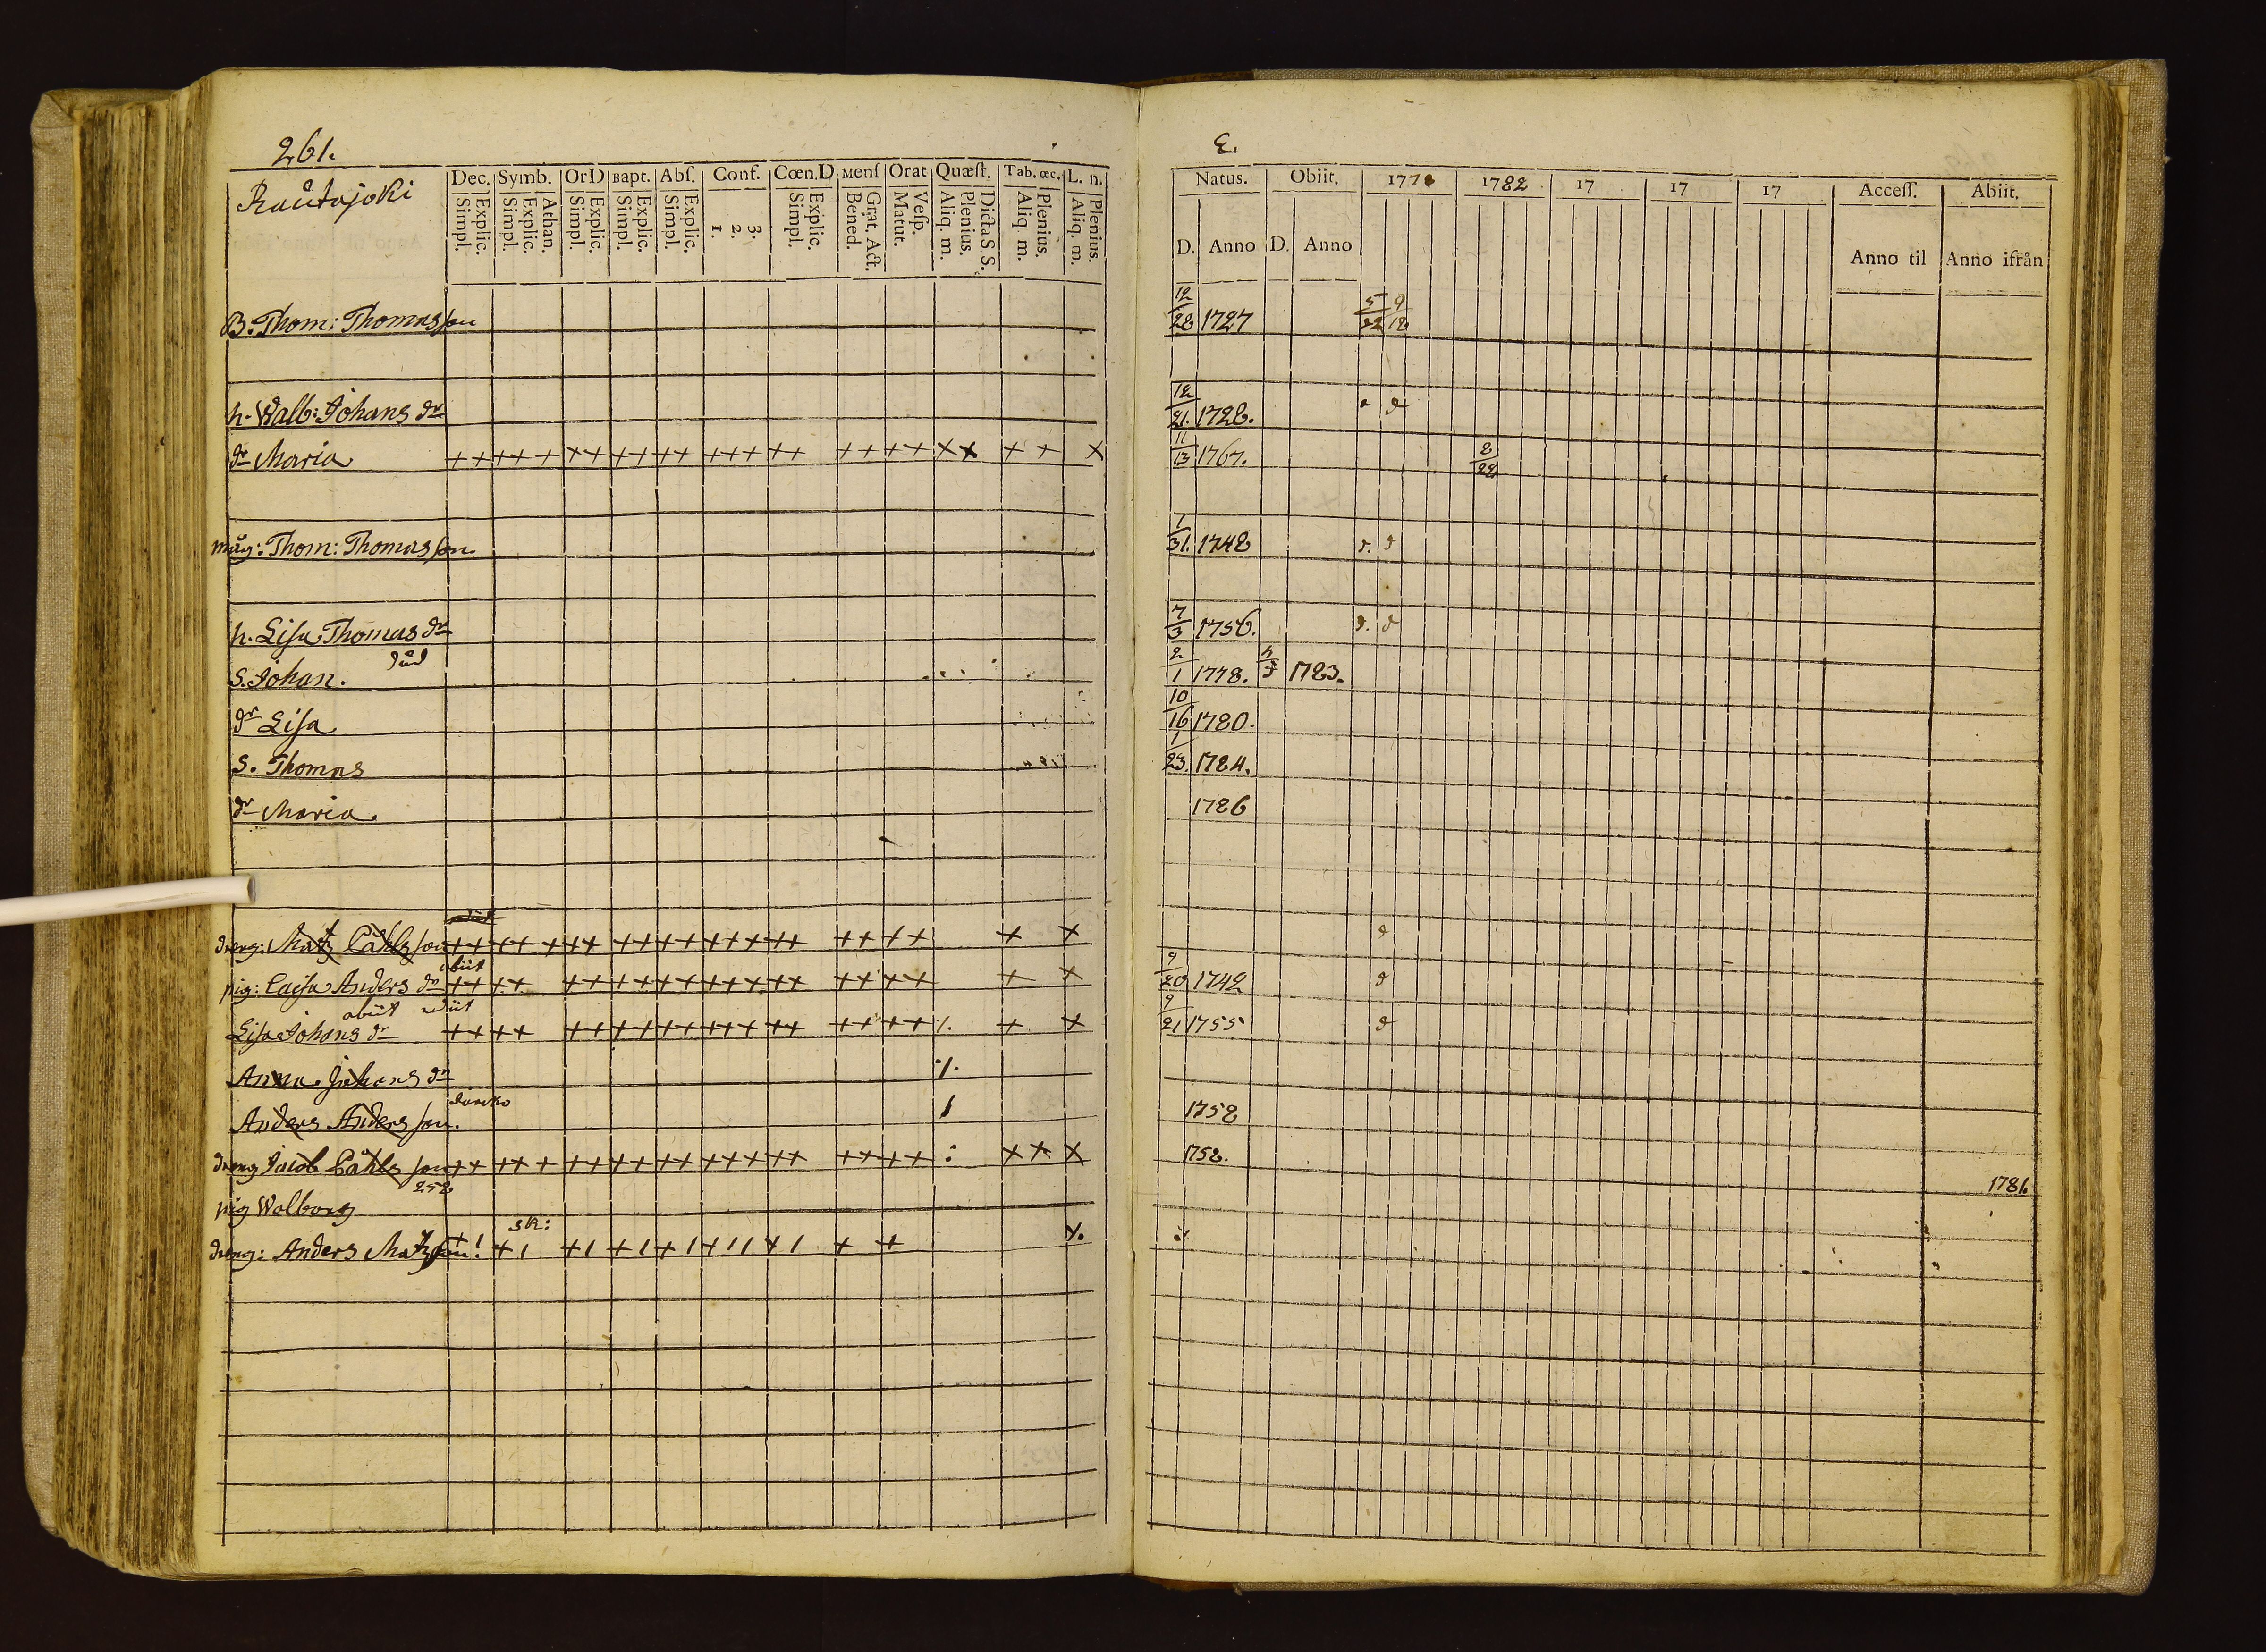 261.
Rautajoki
Dec. Symb. OrD Bapt. Abſ. Conf. Cœn.D Menſ Orat Quæſt. Tab. œc. L. n.
Explic. Simpl. Athan. Explic. Simpl. Explic. Simpl. Explic. Simpl. Explic. Simpl. 3. 2. 1. Explic. Simpl. Grat. Act. Bened. Veſp. Matut. Dicta S S. Plenius. Aliq. m. Plenius. Aliq. m. Plenius. Aliq. m.
B. Thom: Thomasson
h. Walb: Johans dr
dr Maria ++ ++ + ++ ++ ++ +++ ++ ++ ++ ×× + + ×
måg: Thom: Thomasson
h. Lisa Thomas dr
död
S. Johan.
dr Lisa
S. Thomas
dr Maria.
dreng: Matz Påhlsson ++ ++ + ++ ++ ++ +++ ++ ++ ++ + +
abiit
pig: Caisa Anders dr ++ ++ ++ ++ ++ +++ ++ ++ ++ + +
abiit rediit
Lisa Johans dr ++ ++ ++ ++ ++ +++ ++ ++ ++ + +
Anna Johans dr
Anders Andersson.
dreng Jacob Påhlsson ++ ++ + ++ ++ ++ +++ ++ ++ ++ ++ +
252
pig Walborg
dreng: Anders Matzson
Natus. Obiit. 177 1782 17 17 17 Acceſſ. Abiit.
D. Anno D. Anno Anno til Anno ifrån
12/28 1727 5/22 9/18
12/21. 1728.
11/13 1767. 8/29
1/31. 1748
7/3 1756.
2/1 1778. 1783.
10/16 1780.
1/23. 1784.
1786
9/20 1742
9/21 1755
1758
1758.
1786